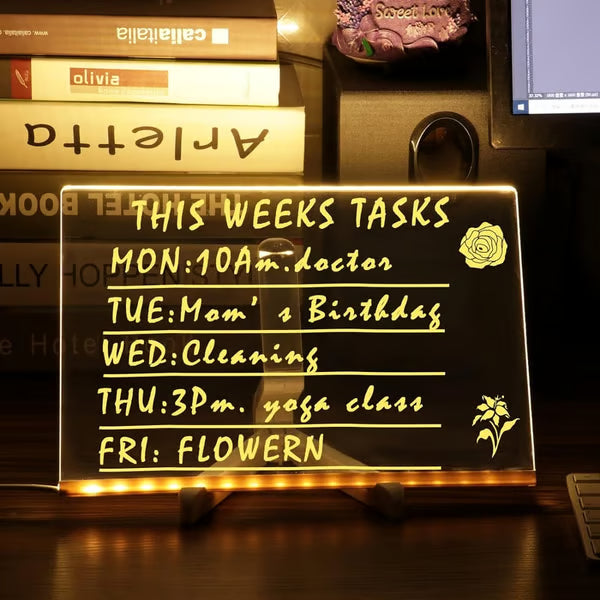 www.callaitalia.com
callaitalia
olivia
Arletta
THE HOTEL BOOK
LLY HOPPEN STYLE
e Hote
Sweet Love
THIS WEEKS TASKS
MON:10Am.doctor
TUE:Mom's Birthdag
WED:Cleaning
THU:3Pm. yoga class
FRI: FLOWERN